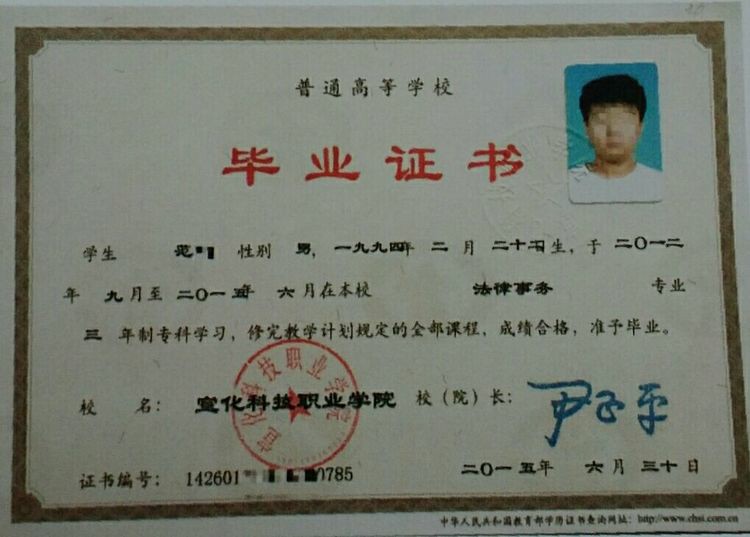 普通高等学校
毕业证书
学生 范 性别 男，一九九四年 二 月 二十二日生，于 二〇一二
年 九 月至 二〇一五年 六 月在本校 法律事务 专业
三 年制专科学习，修完教学计划规定的全部课程，成绩合格，准予毕业。
宣化科技职业学院
校 名： 宣化科技职业学院 校（院）长： 尹玉平
证书编号： 142601 0785 二〇一五年 六 月 三十 日
中华人民共和国教育部学历证书查询网址：http://www.chsi.com.cn